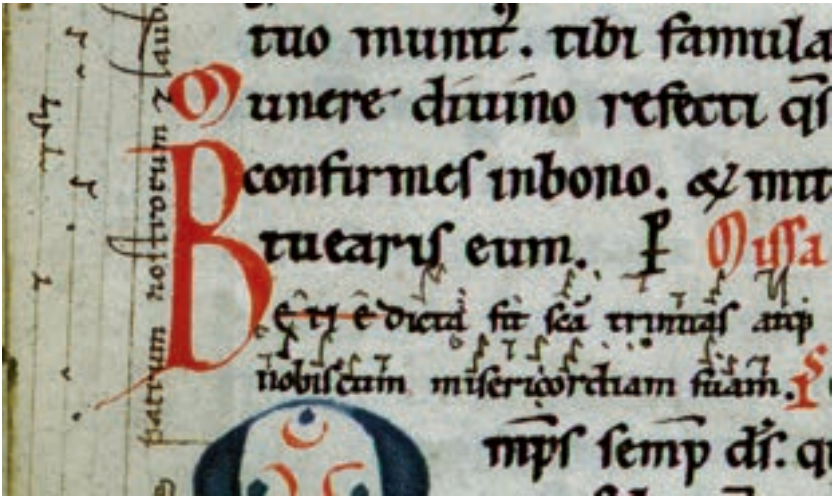 tuo munit᷑. tibi famula
Munere diuino refecti q̄s
confirmes in bono. & mit
tuearis eum. P Missa
Benedicta sit scā trinitas atq;
nobiscum misericordiam suam. Ps
mp̄s semp̄ ds̄. qu
patrum nostrorum ⁊ laud